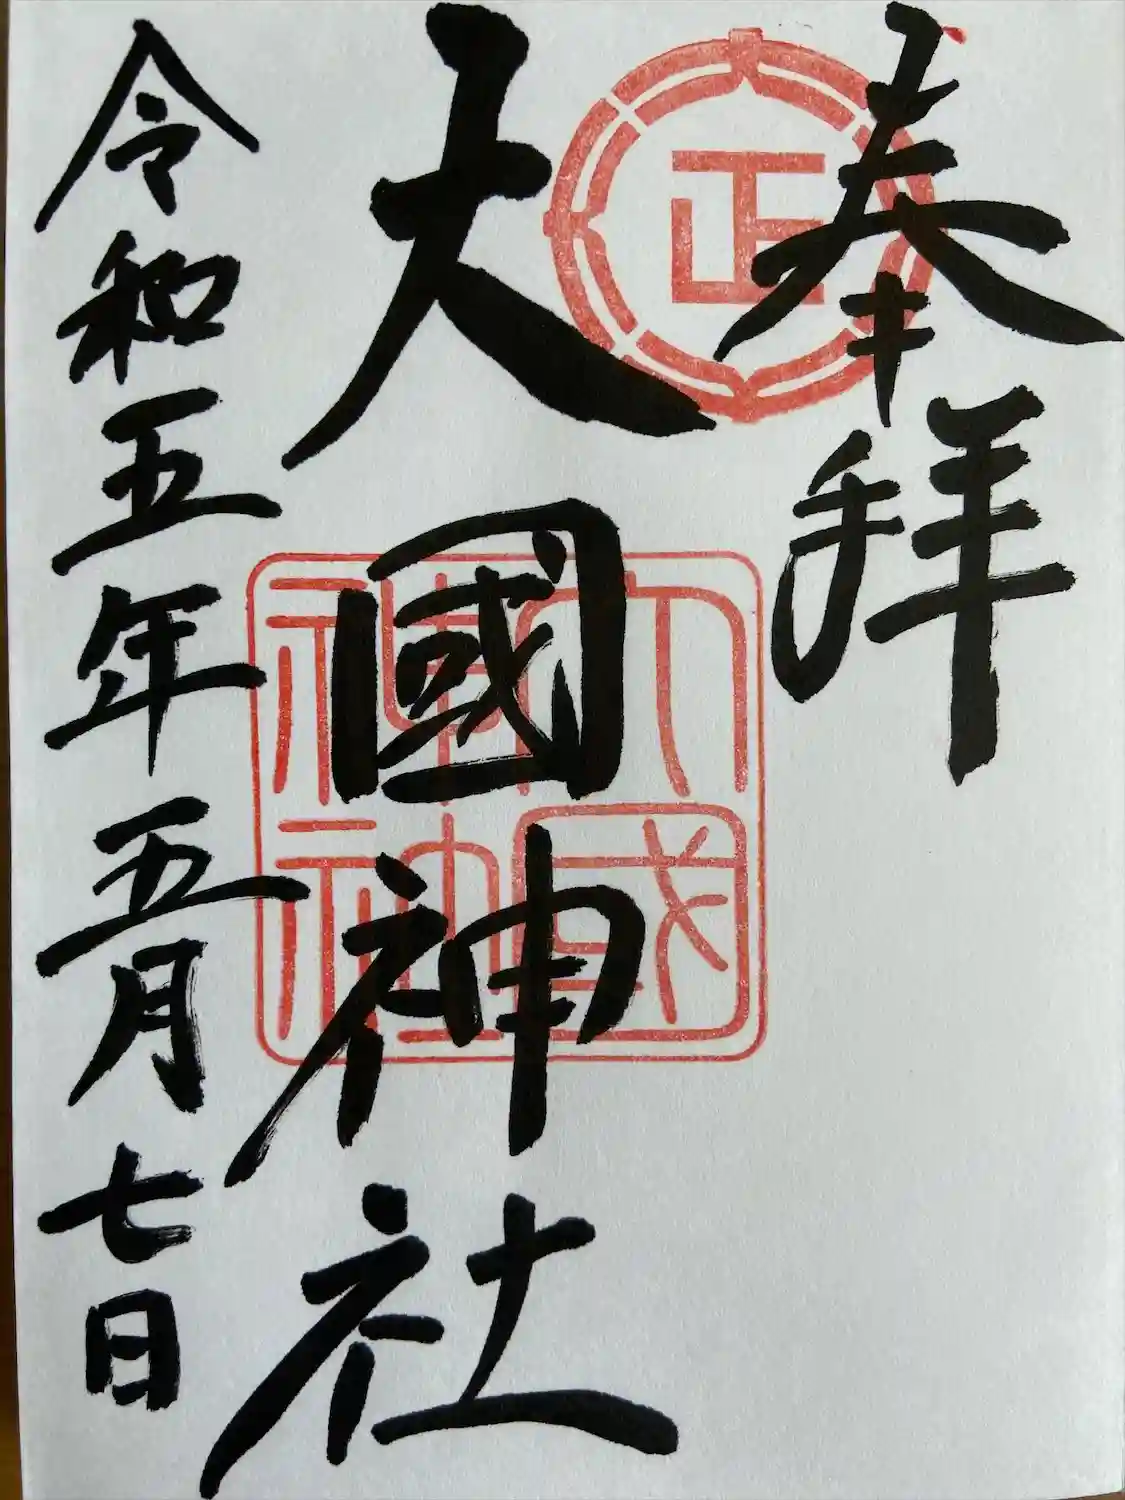 奉拝
正
大國神社
大國
神社
令和五年五月七日